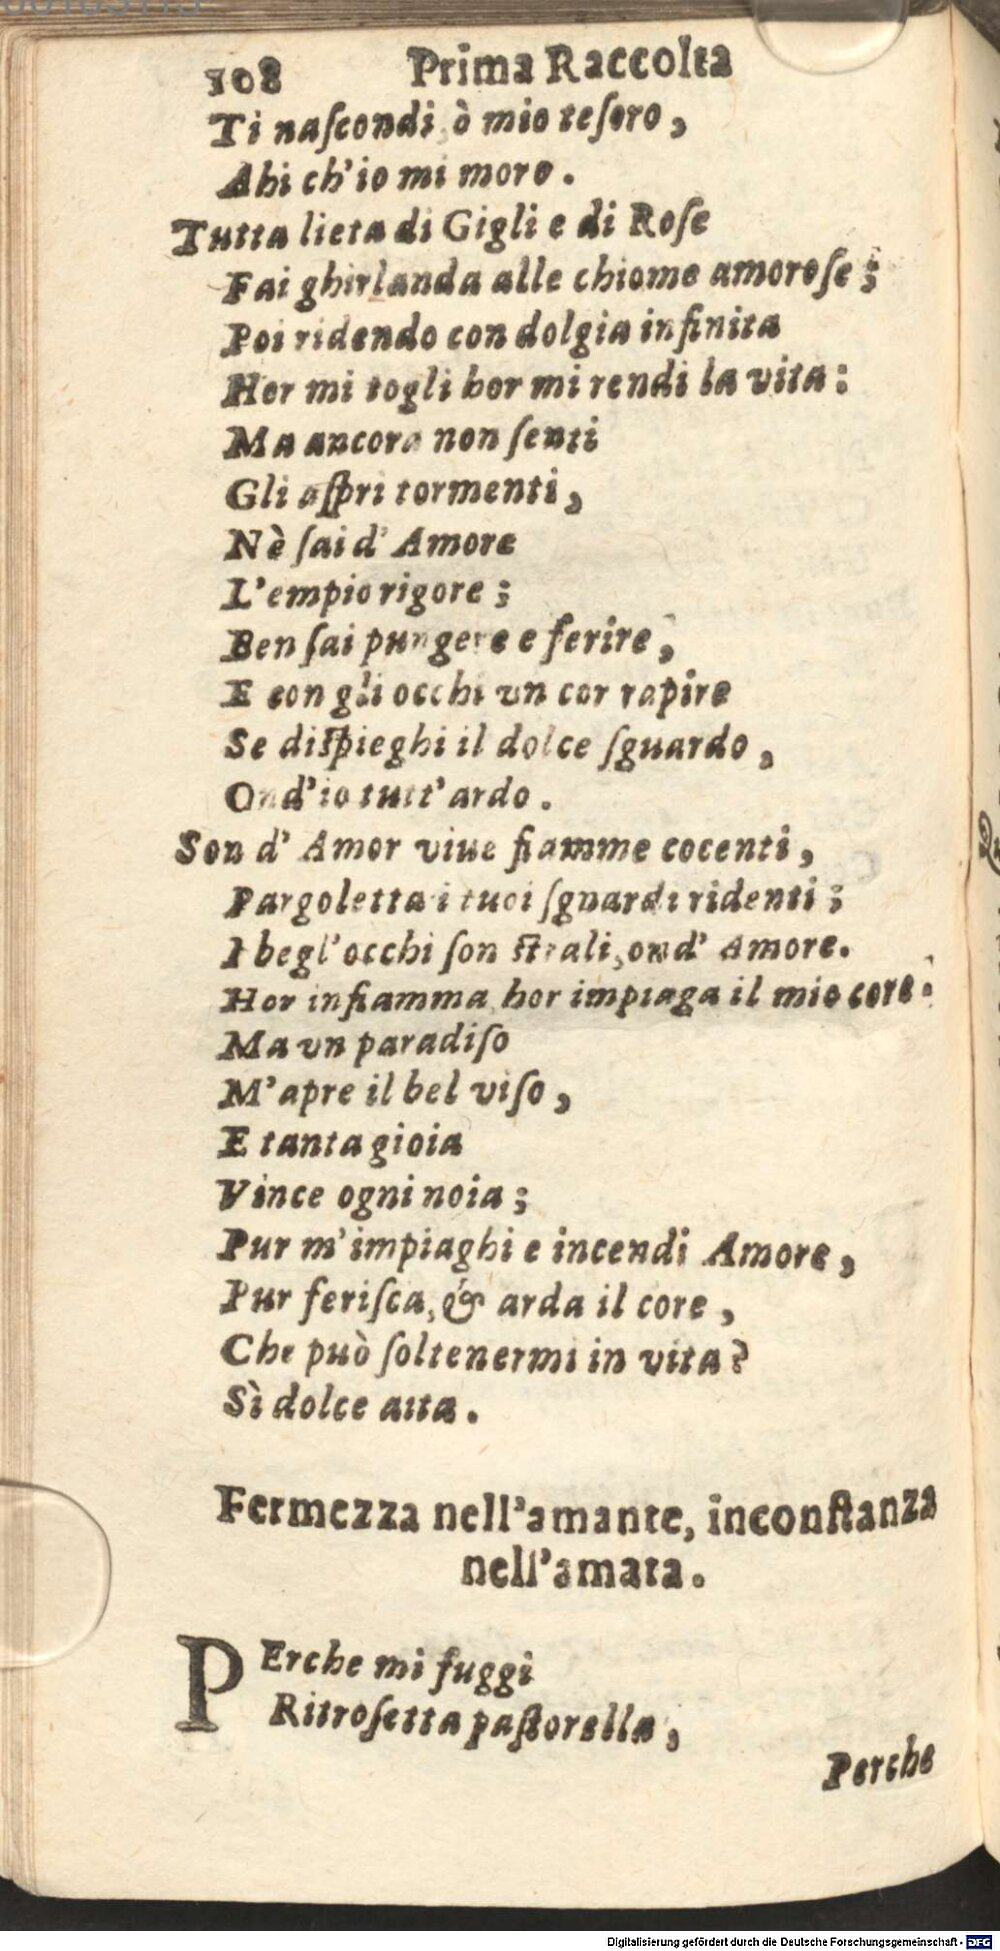 108 Prima Raccolta
Ti naſcondi ò mio teſoro,
Ahi ch'io mi moro.
Tutta lieta di Gigli e di Roſe
Fai ghirlanda alle chiome amoroſe;
Poi ridendo con dolgia infinita
Hor mi togli hor mi rendi la vita:
Ma ancora non ſenti
Gli aſpri tormenti,
Nè ſai d' Amore
L'empio rigore;
Ben ſai pungere e ferire,
E con gli occhi vn cor rapire
Se diſpieghi il dolce ſguardo,
Ond'io tutt' ardo.
Son d' Amor viue fiamme cocenti,
Pargoletta i tuoi ſguardi ridenti;
I begl'occhi ſon ſtrali, ond' Amore.
Hor infiamma hor impiaga il mio core.
Ma vn paradiſo
M'apre il bel viſo,
E tanta gioia
Vince ogni noia;
Pur m'impiaghi e incendi Amore,
Pur feriſca, & arda il core,
Che può ſoltenermi in vita?
Sì dolce aita.
Fermezza nell'amante, inconſtanza
nell'amata.
PErche mi fuggi
Ritroſetta paſtorella,
Perche
Digitalisierung gefördert durch die Deutsche Forschungsgemeinschaft - DFG